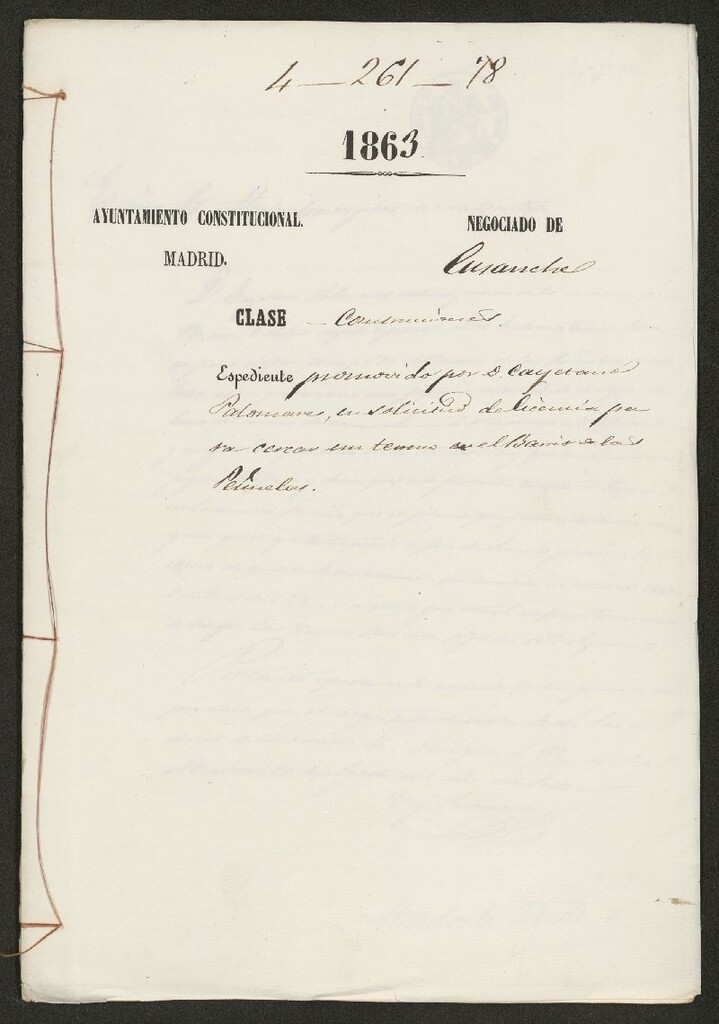 4 — 261 — 78
1863
AYUNTAMIENTO CONSTITUCIONAL.
MADRID.
NEGOCIADO DE
Ensanche
CLASE Construcciones.
Espediente promovido por D. Cayetano
Palomares, en solicitud de licencia pa
ra cercar un terreno en el Barrio de las
Peñuelas.